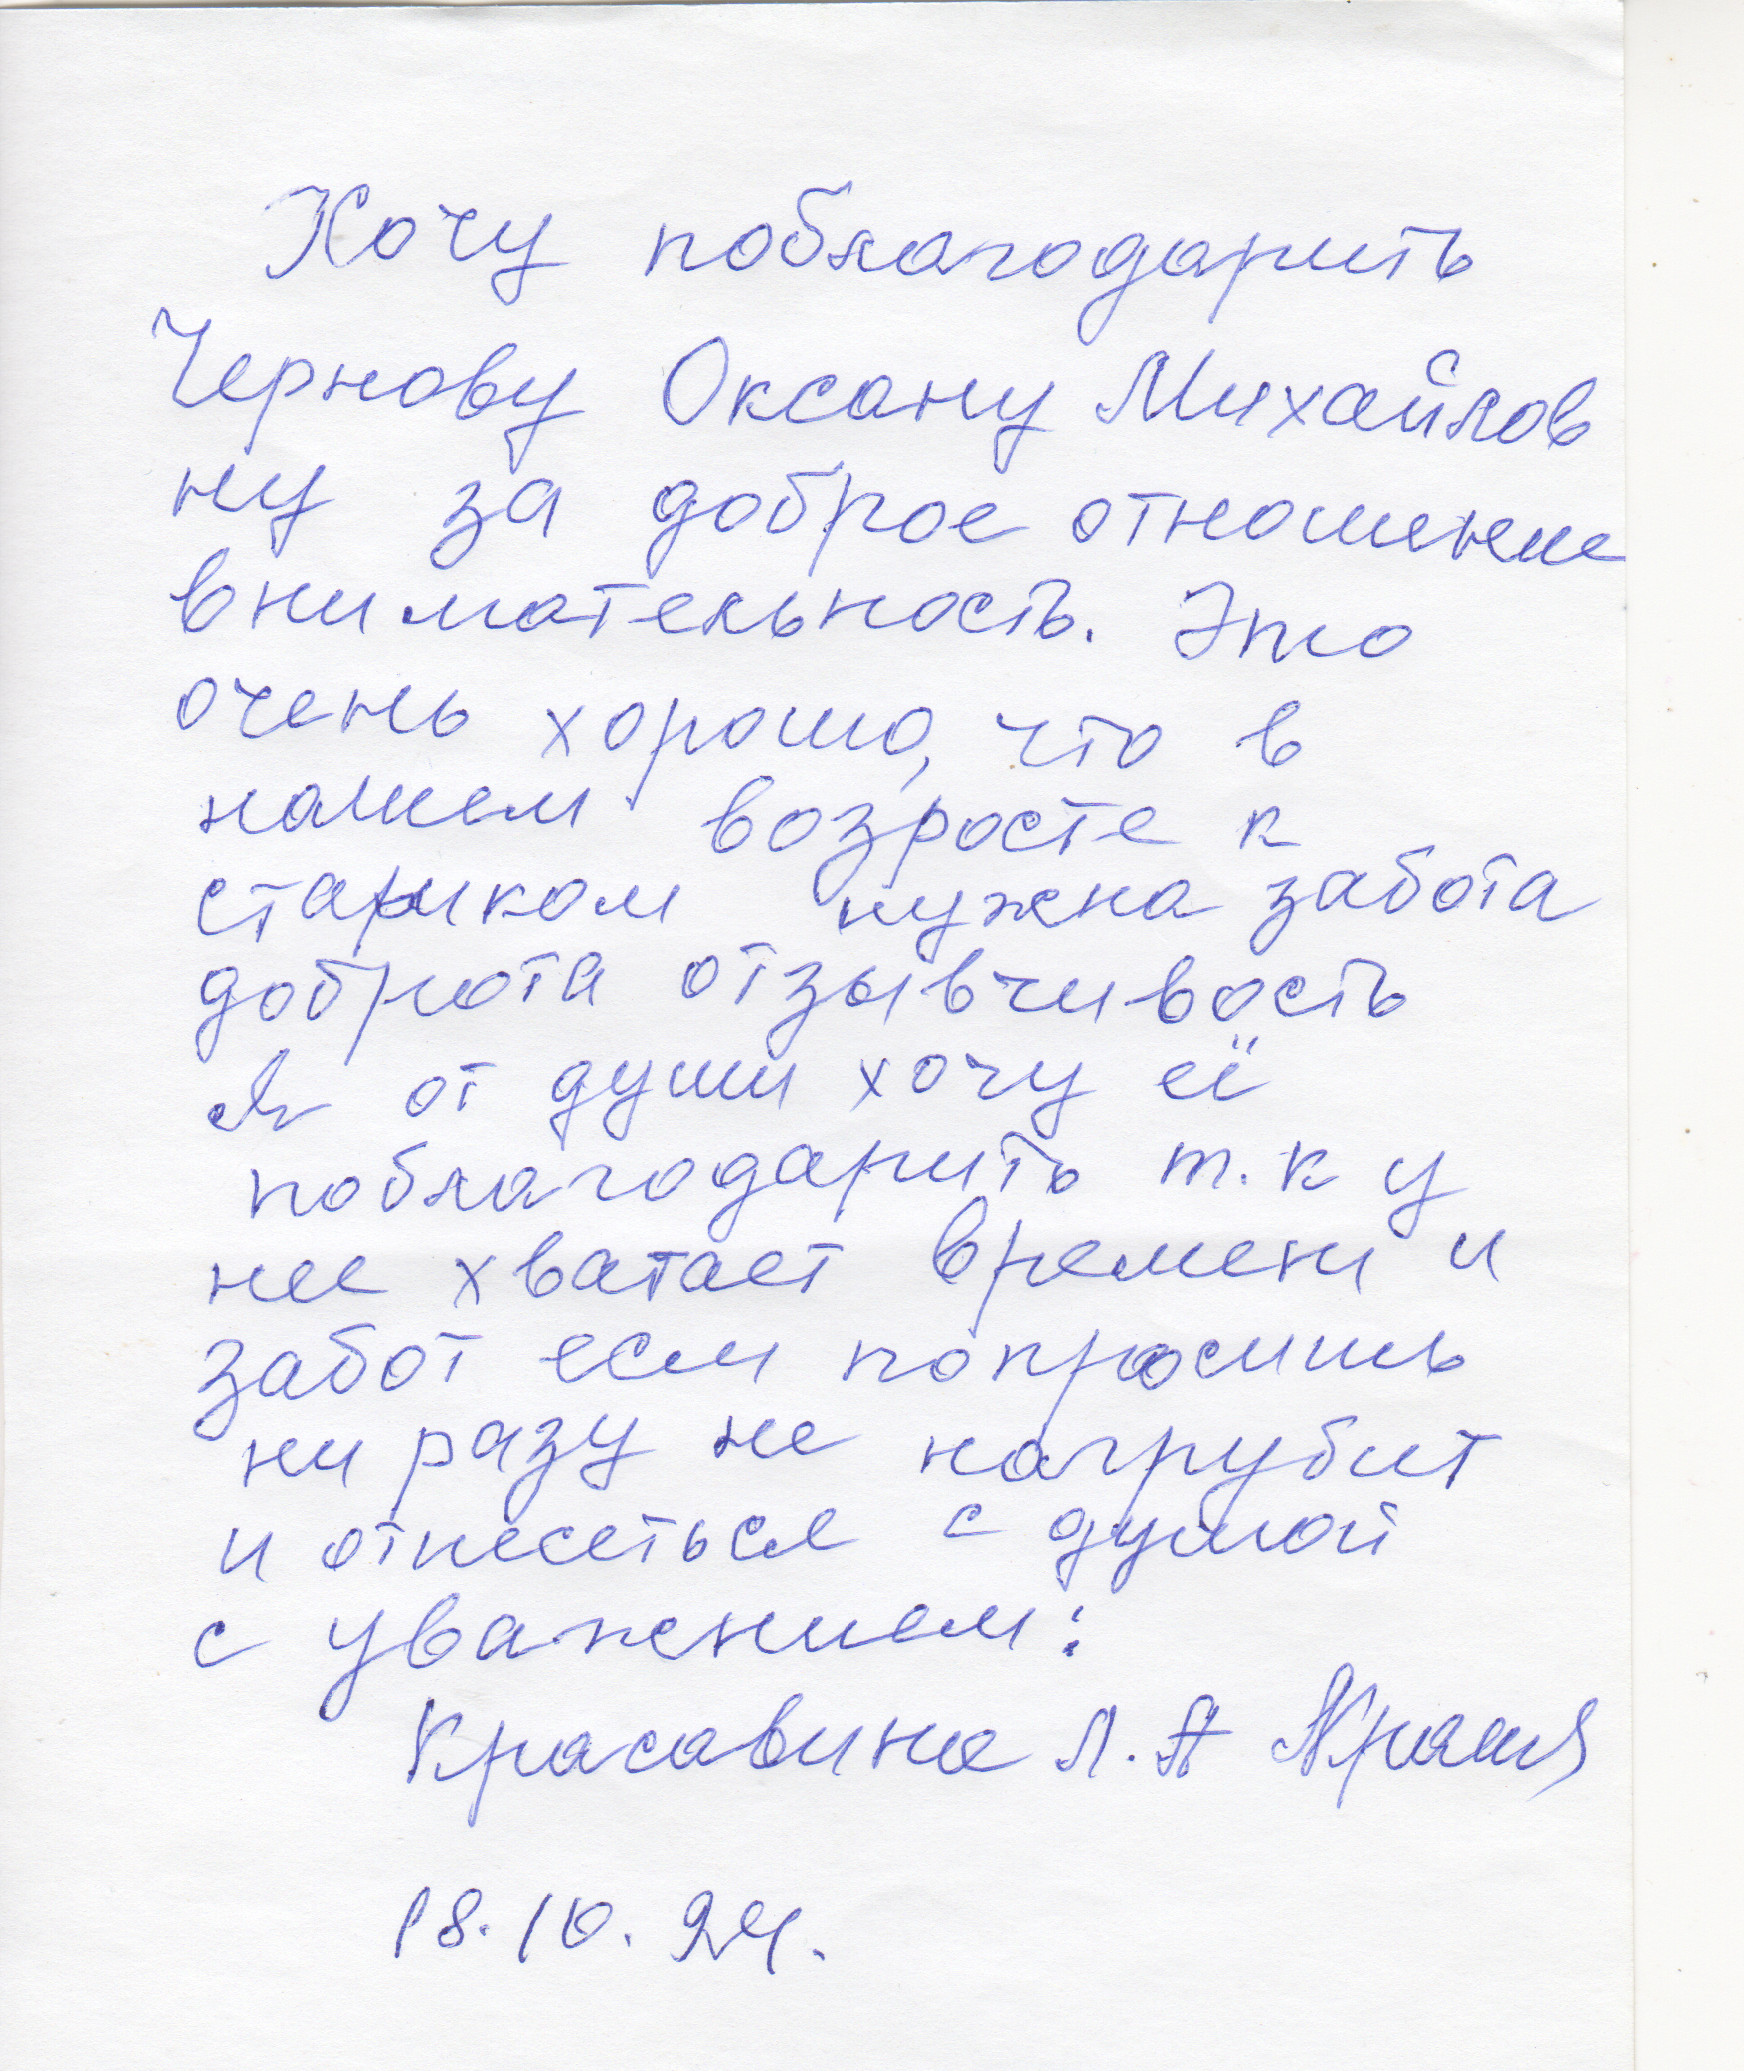 Хочу поблагодарить
Чернову Оксану Михайлов
ну за доброе отношение
внимательность. Это
очень хорошо, что в
нашем возросте к
стариком нужна забота
доброта отзывчивость
Я от души хочу её
поблагодарить т.к у
нее хватает времени и
забот если попросишь
ни разу не нагрубит
и отнесеться с душой
с уважением:
Красавина Л.А
18.10.24.